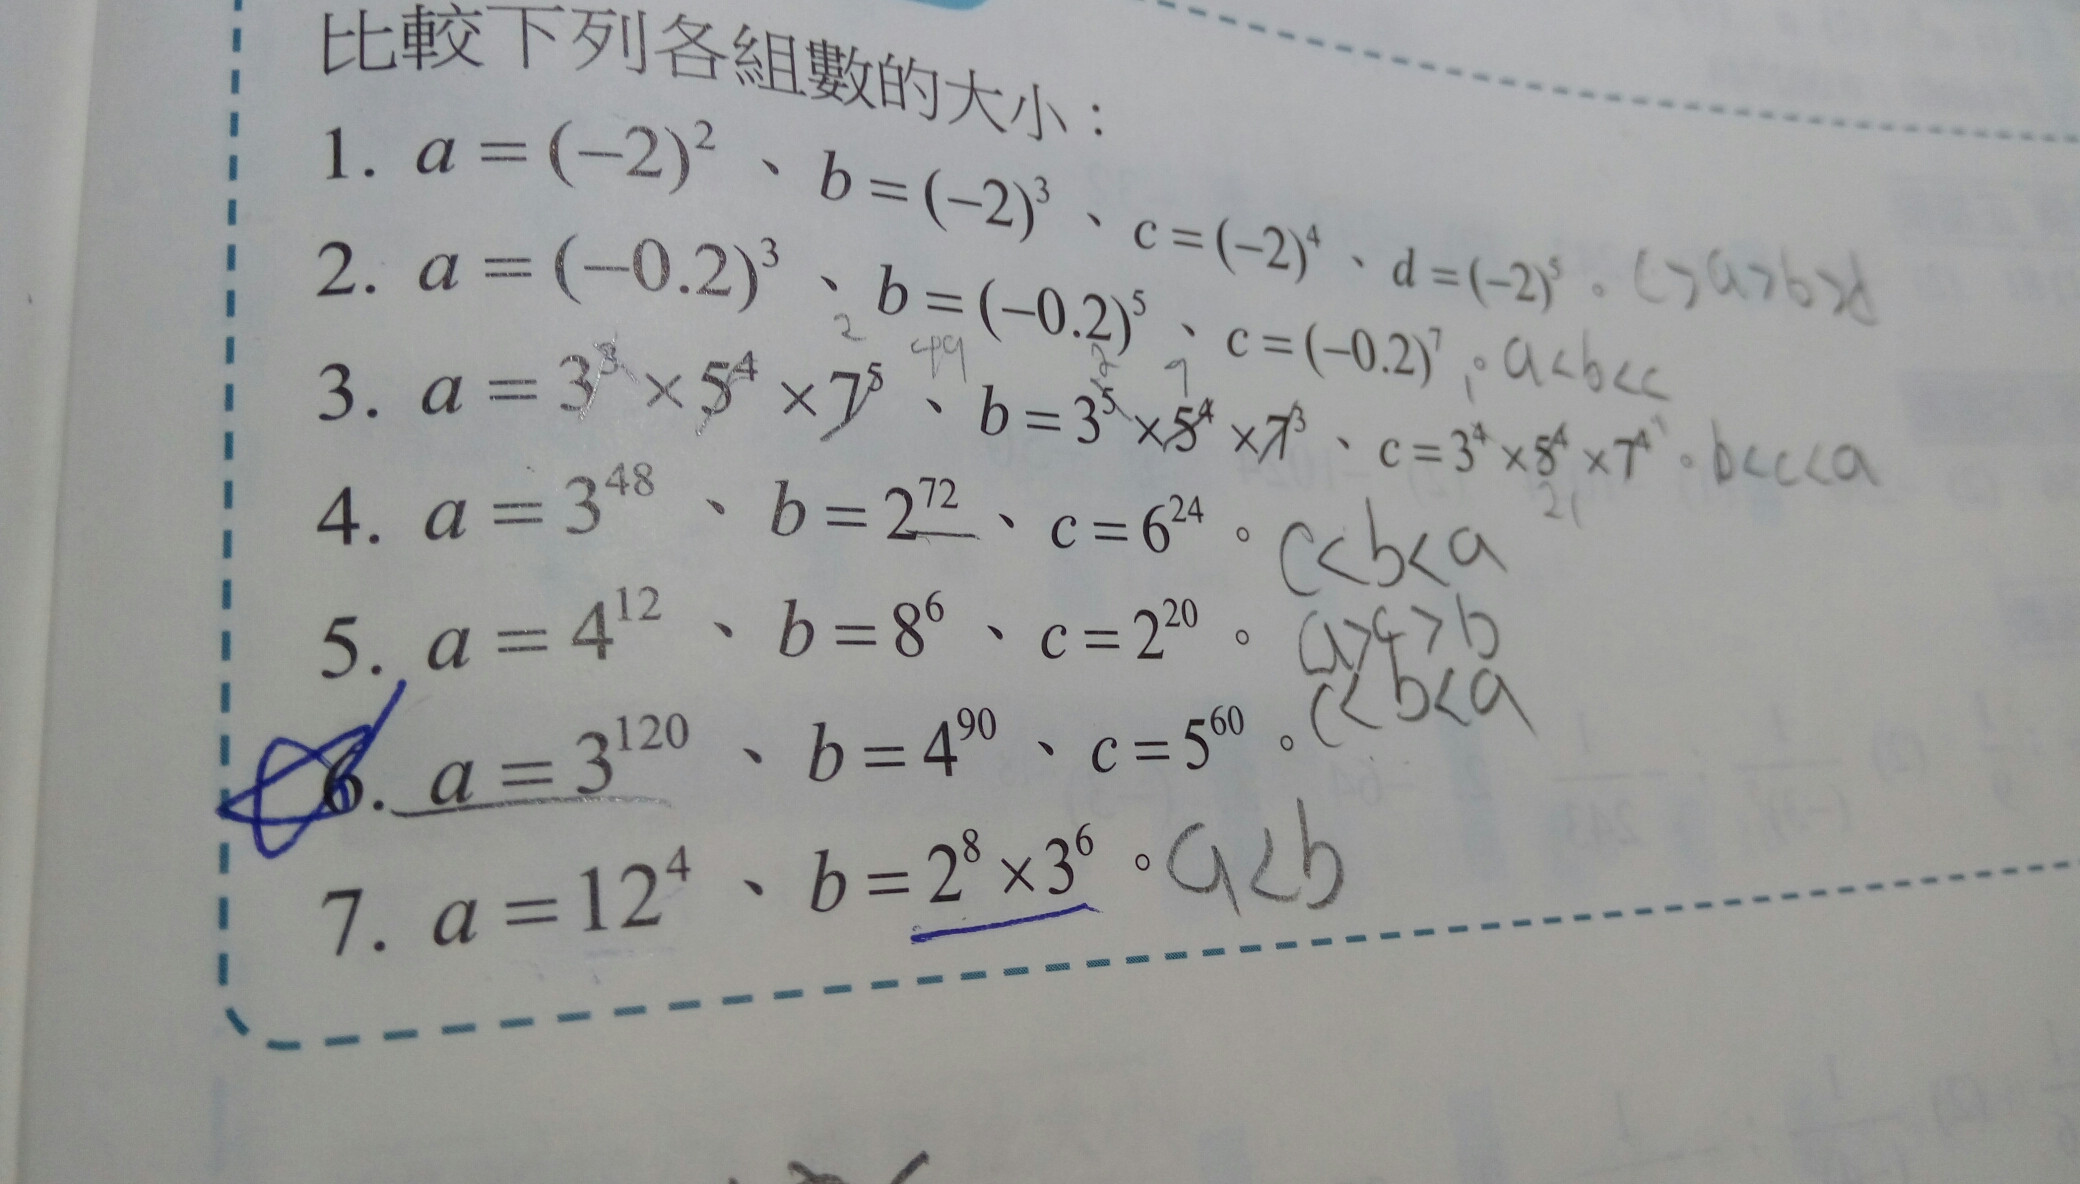 比較下列各組數的大小：
1. a = (−2)² 、 b = (−2)³ 、 c = (−2)⁴ 、 d = (−2)⁵ 。 c>a>b>d
2. a = (−0.2)³ 、 b = (−0.2)⁵ 、 c = (−0.2)⁷ 。 a<b<c
2 49 9
3. a = 3³ × 5⁴ × 7⁵ 、 b = 3⁵ × 5⁴ × 7³ 、 c = 3⁴ × 5⁴ × 7⁴ 。 b<c<a
21
4. a = 3⁴⁸ 、 b = 2⁷² 、 c = 6²⁴ 。 c<b<a
5. a = 4¹² 、 b = 8⁶ 、 c = 2²⁰ 。 a>c>b
6. a = 3¹²⁰ 、 b = 4⁹⁰ 、 c = 5⁶⁰ 。 c<b<a
7. a = 12⁴ 、 b = 2⁸ × 3⁶ 。 a<b